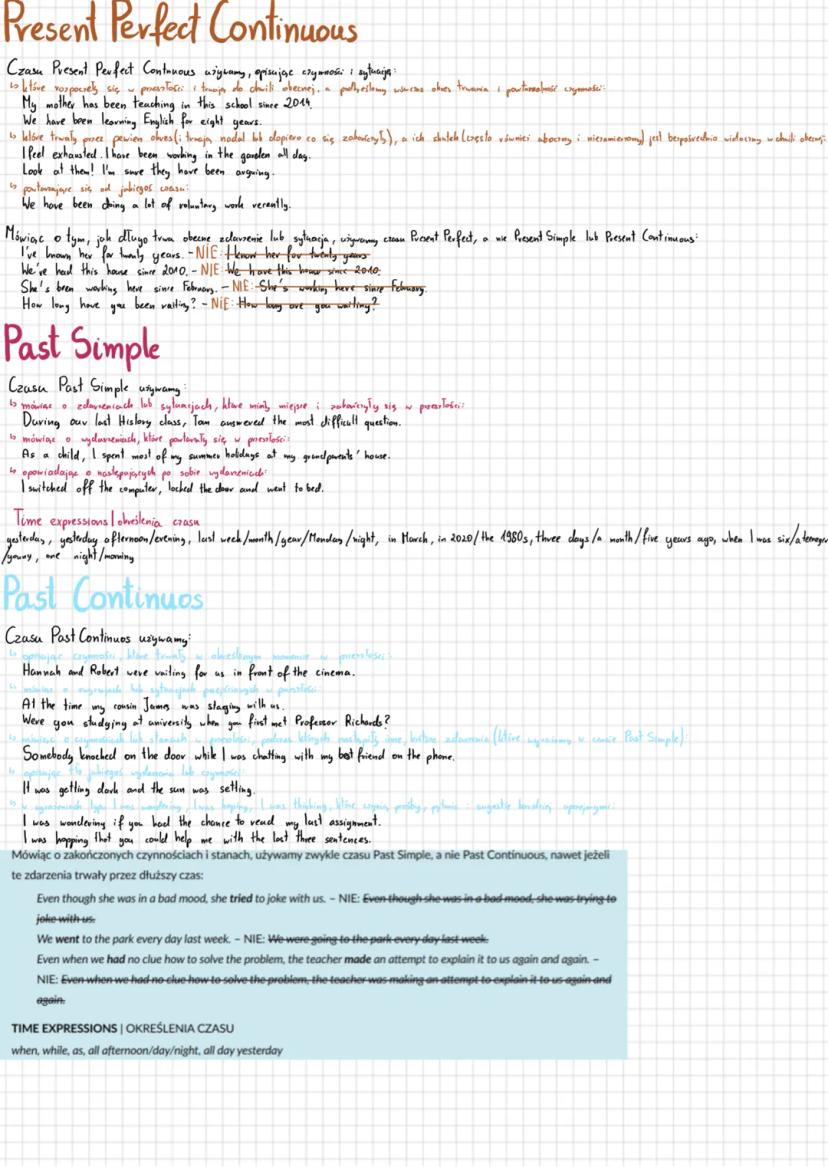 Present Perfect Continuous
Czasu Present Perfect Continuous używamy, opisując czynności i sytuacje:
↳ które rozpoczęły się w przeszłości i trwają do chwili obecnej, a podkreślamy wówczas okres trwania i powtarzalność czynności:
My mother has been teaching in this school since 2014.
We have been learning English for eight years.
↳ które trwały przez pewien okres (i trwają nadal lub dopiero co się zakończyły), a ich skutek (często również uboczny i niezamierzony) jest bezpośrednio widoczny w chwili obecnej:
I feel exhausted. I have been working in the garden all day.
Look at them! I'm sure they have been arguing.
↳ powtarzające się od jakiegoś czasu:
We have been doing a lot of voluntary work recently.
Mówiąc o tym, jak długo trwa obecne zdarzenie lub sytuacja, używamy czasu Present Perfect, a nie Present Simple lub Present Continuous:
I've known her for twenty years. – NIE: I know her for twenty years
We've had this house since 2010. – NIE: We have this house since 2010.
She's been working here since February. – NIE: She's working here since February.
How long have you been vaiting? – NIE: How long are you waiting?
Past Simple
Czasu Past Simple używamy:
↳ mówiąc o zdarzeniach lub sytuacjach, które miały miejsce i zakończyły się w przeszłości:
During our last History class, Tom answered the most difficult question.
↳ mówiąc o wydarzeniach, które powtarzały się w przeszłości:
As a child, I spent most of my summer holidays at my grandparents' house.
↳ opowiadając o następujących po sobie wydarzeniach:
I switched off the computer, locked the door and went to bed.
Time expressions | określenia czasu
yesterday, yesterday afternoon/evening, last week/month/year/Monday/night, in March, in 2020/the 1980s, three days/a month/five years ago, when I was six/a teenager
/young, one night/morning
Past Continuos
Czasu Past Continuos używamy:
↳ opisując czynności, które trwały w określonym momencie w przeszłości:
Hannah and Robert were vaiting for us in front of the cinema.
↳ mówiąc o lub sytuacjach w przeszłości:
At the time my cousin James was staying with us.
Were you studying at university when you first met Professor Richards?
↳ mówiąc o czynnościach lub stanach w przeszłości, podczas których nastąpiły inne, krótsze zdarzenia (które wyrażamy w czasie Past Simple):
Somebody knocked on the door while I was chatting with my best friend on the phone.
↳ opisując tło jakiegoś wydarzenia lub czynności:
It was getting dark and the sun was setting.
↳ w wyrażeniach typu I was wondering, I was hoping, I was thinking, które czynią prośby, pytania i sugestie bardziej uprzejmymi:
I was wondering if you had the chance to read my last assignment.
I was hopping that you could help me with the last three sentences.
Mówiąc o zakończonych czynnościach i stanach, używamy zwykle czasu Past Simple, a nie Past Continuous, nawet jeżeli
te zdarzenia trwały przez dłuższy czas:
Even though she was in a bad mood, she tried to joke with us. – NIE: Even though she was in a bad mood, she was trying to
joke with us.
We went to the park every day last week. – NIE: We were going to the park every day last week.
Even when we had no clue how to solve the problem, the teacher made an attempt to explain it to us again and again. –
NIE: Even when we had no clue how to solve the problem, the teacher was making an attempt to explain it to us again and
again.
TIME EXPRESSIONS | OKREŚLENIA CZASU
when, while, as, all afternoon/day/night, all day yesterday